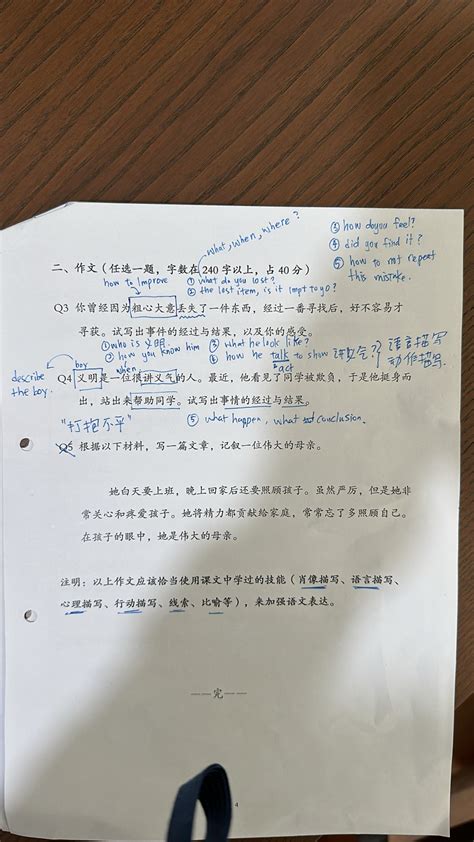 what, when, where?
③ how do you feel?
④ did you find it?
⑤ how to not repeat
this mistake.
二、作文（任选一题，字数在 240 字以上，占 40 分）
how to improve
① what do you lost?
② the lost item, is it impt to go?
Q3 你曾经因为粗心大意丢失了一件东西，经过一番寻找后，好不容易才
寻获。试写出事件的经过与结果，以及你的感受。
① who is 义明.
② how you know him
③ what he look like?
④ how he talk to show 讲义气??
act
语言描写
动作描写.
describe
the boy.
boy
when
Q4 义明是一位很讲义气的人。最近，他看见了同学被欺负，于是他挺身而
出，站出来帮助同学。试写出事情的经过与结果。
"打抱不平"
⑤ what happen, what conclusion.
Q5 根据以下材料，写一篇文章，记叙一位伟大的母亲。
她白天要上班，晚上回家后还要照顾孩子。虽然严厉，但是她非
常关心和疼爱孩子。她将精力都贡献给家庭，常常忘了多照顾自己。
在孩子的眼中，她是伟大的母亲。
注明：以上作文应该恰当使用课文中学过的技能（肖像描写、语言描写、
心理描写、行动描写、线索、比喻等），来加强语文表达。
——完——
4